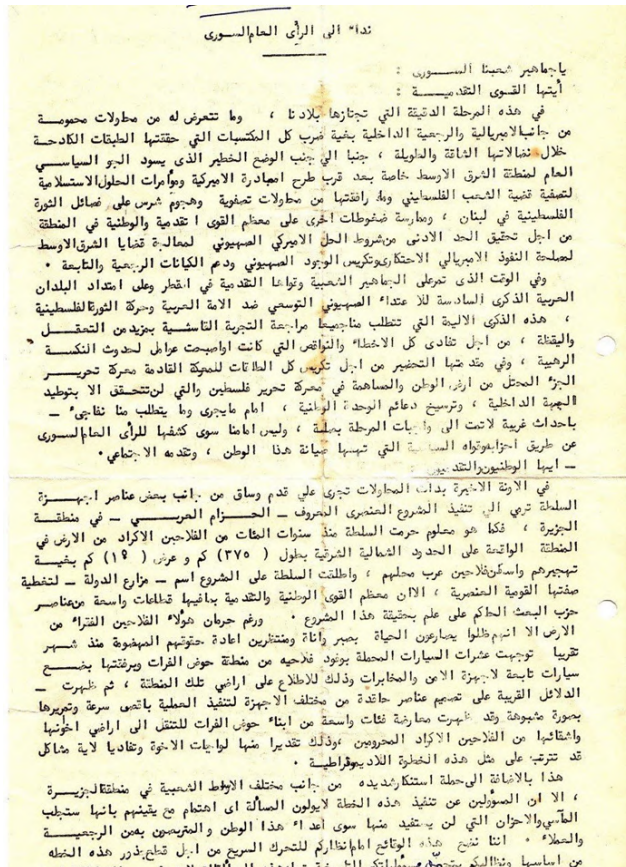 نداء الى الرأى العام السورى
ياجماهير شعبنا السورى :
أيتها القوى التقدمية :
في هذه المرحلة الدقيقة التي تجتازها بلادنا ، وما تتعرض له من محاولات محمومة
من جانب الامبريالية والرجعية الداخلية بغية ضرب كل المكتسبات التي حققتها الطبقات الكادحة
خلال نضالاتها الشاقة والطويلة ، جنبا الى جنب الوضع الخطير الذى يسود الجو السياسي
العام لمنطقة الشرق الاوسط خاصة بعد قرب طرح المبادرة الاميركية ومؤامرات الحلول الاستسلامية
لتصفية قضية الشعب الفلسطيني وما رافقتها من محاولات تصفوية وهجوم شرس على فصائل الثورة
الفلسطينية في لبنان ، وممارسة ضغوطات اخرى على معظم القوى التقدمية والوطنية في المنطقة
من اجل تحقيق الحد الادنى من شروط الحل الاميركي الصهيوني لمعالجة قضايا الشرق الاوسط
لمصلحة النفوذ الامبريالي الاحتكارى وتكريس الوجود الصهيوني ودعم الكيانات الرجعية والتابعة ٠
وفي الوقت الذى تمر على الجماهير الشعبية وقواها التقدمية في القطر وعلى امتداد البلدان
العربية الذكرى السادسة للاعتداء الصهيوني التوسعي ضد الامة العربية وحركة الثورة الفلسطينية
، هذه الذكرى الاليمة التي تتطلب منا جميعا مراجعة التجربة القاسية بمزيد من التعقل
واليقظة ، من اجل تفادى كل الاخطاء والنواقص التي كانت اواصبحت عوامل لحدوث النكسة
الرهيبة ، وفي مقدمتها التحضير من اجل تكريس كل الطاقات للمعركة القادمة معركة تحرير
الجزء المحتل من ارض الوطن والمساهمة في معركة تحرير فلسطين والتي لن تتحقق الا بتوطيد
الجبهة الداخلية ، وترسيخ دعائم الوحدة الوطنية ، امام مايجرى وما يتطلب منا نفاجىء –
باحداث غريبة لاتمت الى واجبات المرحلة بصلة ، وليس امامنا سوى كشفها للرأى العام السورى
عن طريق احزابه وقواه السياسية التي تهمها صيانة هذا الوطن ، وتقدمه الاجتماعي ٠
– ايها الوطنيون والتقدميون :
في الاونة الاخيرة بدات المحاولات تجرى على قدم وساق من جانب بعض عناصر اجهزة
السلطة ترمي الى تنفيذ المشروع العنصرى المعروف – الحزام العربي – في منطقة
الجزيرة ، فكما هو معلوم حرمت السلطة منذ سنوات المئات من الفلاحين الاكراد من الارض في
المنطقة الواقعة على الحدود الشمالية الشرقية بطول ( ٣٧٥ ) كم و عرض ( ١٩ ) كم بغية
تهجيرهم واسكن فلاحين عرب محلهم ، واطلقت السلطة على المشروع اسم – مزارع الدولة – لتغطية
صفتها القومية العنصرية ، الاان معظم القوى الوطنية والتقدمية بدافيها قطاعات واسعة من عناصر
حزب البعث الحاكم على علم بحقيقة هذا المشروع ٠ ورغم حرمان هؤلاء الفلاحين الفقراء من
الارض الا انهم ظلوا يصارعون الحياة بصبر واناة ومنتظرين اعادة حقوقهم المهضومة منذ شهر
تقريبا توجهت عشرات السيارات المحملة بوفود فلاحيه من منطقة حوض الفرات وبرفقتها بضع
سيارات تابعة لاجهزة الامن والمخابرات وذلك للاطلاع على اراضي تلك المنطقة ، ثم ظهرت –
الدلائل القريبة على تصميم عناصر حاقدة من مختلف الاجهزة لتنفيذ العملية باقصى سرعة وتمريرها
بصورة مشبوهة وقد ظهرت معارضة فئات واسعة من ابناء حوض الفرات للتنقل الى اراضي اخوتها
واشقائها من الفلاحين الاكراد المحرومين ،وذلك تقديرا منها لواجبات الاخوة وتفاديا لاية مشاكل
قد تترتب على مثل هذه الخطوة اللاديموقراطية ٠
هذا بالاضافة الى حملة استنكار شديده من جانب مختلف الاوساط الشعبية في منطقة الجزيرة
، الا ان المسؤولين عن تنفيذ هذه الخطة لايولون المسألة اى اهتمام مع يقينهم بانها ستجلب
المآسي والاحزان التي لن يستفيد منها سوى اعداء هذا الوطن و المتربصين به من الرجعية
والعملاء ٠ اننا نضع هذه الوقائع امام انظاركم للتحرك السريع من اجل قطع جذور هذه الخطه
من اساسها